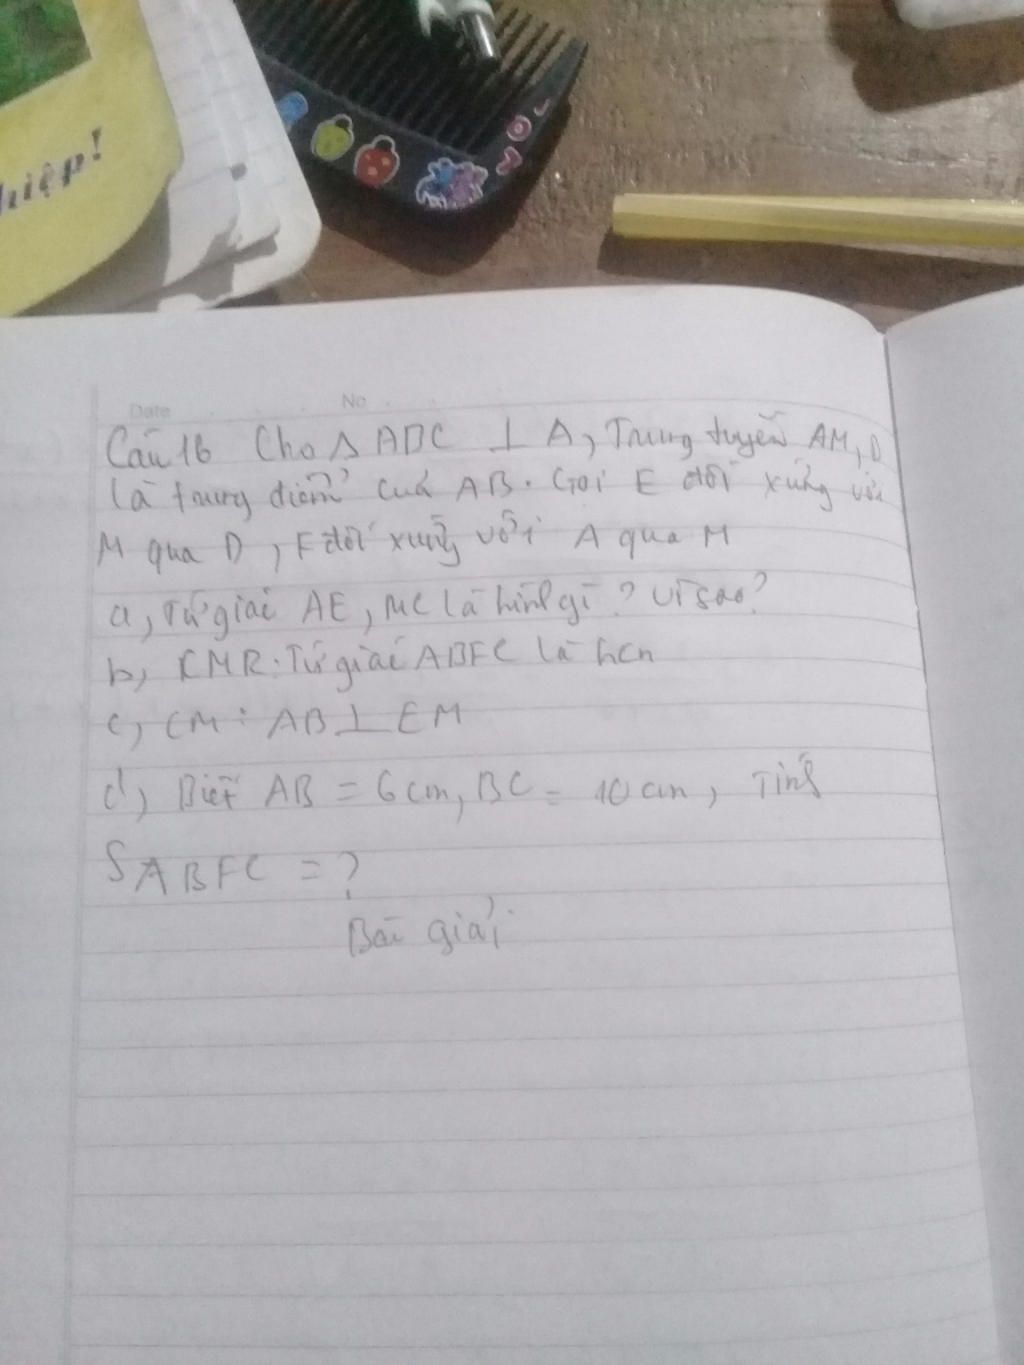 hiệp!
Date No
Câu 16 Cho Δ ABC ⊥ A, Trung tuyến AM, D
là trung điểm của AB. Gọi E đối xứng với
M qua D, F đối xứng với A qua M
a, Tứ giác AE, MC là hình gì? Vì sao?
b, CMR: Tứ giác ABFC là hcn
c, CM: AB ⊥ EM
d, Biết AB = 6cm, BC = 10cm, Tính
SABFC = ?
Bài giải